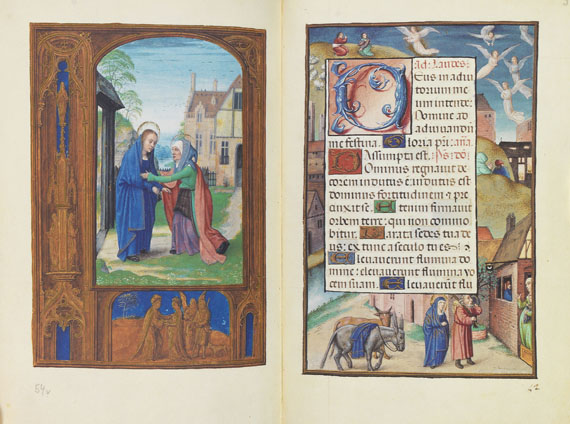 ad: Laudes:
Deus in adiu
torium me
um intende.
Domine ad
adiuvandū
me festina. Gloria p̄ri: añā.
Assumpta est. Ps. dō.
Dominus regnavit de
corem indutus ē: indutus est
dominus fortitudinem ⁊ pre
cinxit se. Etenim firmavit
orbem terre: qui non commo
bitur. Parata sedes tua de
us: ex tunc a seculo tu es.
Elevaverunt flumina do
mine: elevaverunt flumina vo
cem suam. Elevaverunt flu
54v